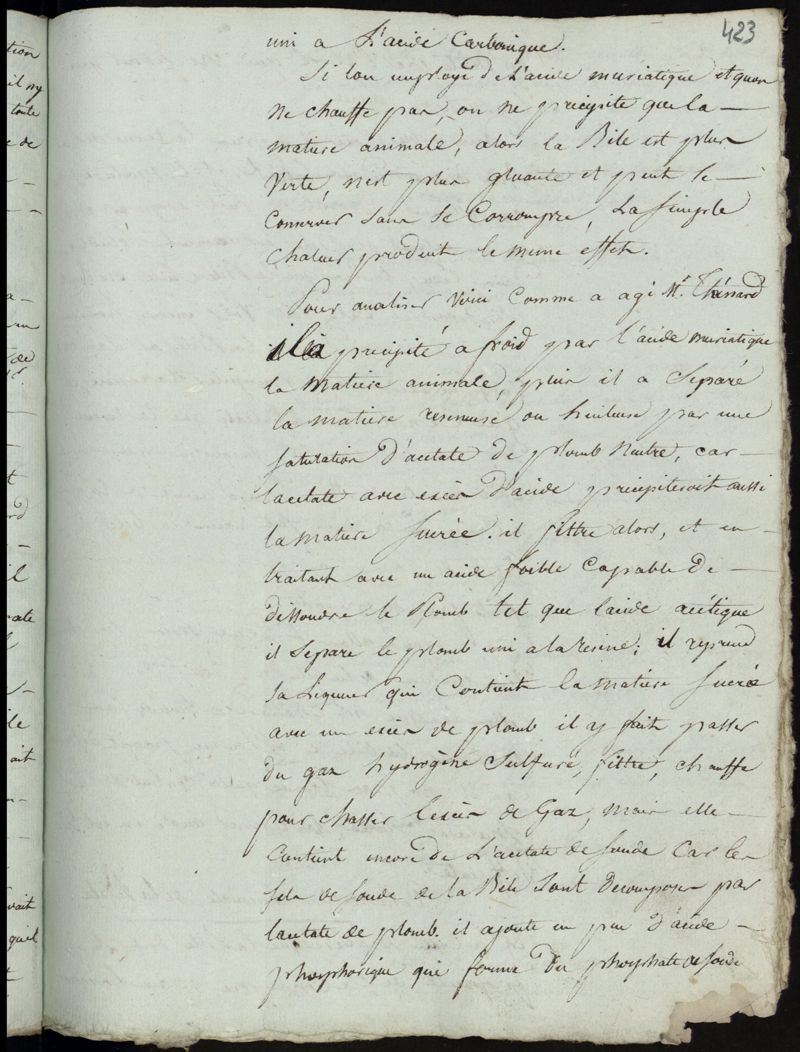 423
uni a L'acide Carbonique.
Si lon employe de L'acide muriatique et quon
ne chauffe pas, on ne precipite que la
matiere animale, alors la Bile est plus
Verte, nest plus gluante et peut se
Conserver sans se Corrompre, La simple
Chaleur produit le meme effet.
Pour analiser Voici comme a agi Mr. Thénard
il a precipité a froid par l'acide muriatique
la matiere animale, puis il a Separé
la matiere resineuse ou huileuse par une
saturation d'acetate de plomb Neutre, car
lacetate avec excès d'acide precipiteroit aussi
la matiere Sucrée. il filtre alors, et en
traitant avec un acide foible Capable de
dissoudre le Plomb tel que lacide acétique
il Separe le plomb uni a la resine; il reprend
sa Liqueur qui Contient la matiere Sucrée
avec un excès de plomb il y fait passer
du gaz hydrogène Sulfuré, filtre, chauffe
pour chasser lexcès de Gaz, mais elle
Contient encore de L'acetate de soude Car les
sels de soude de la Bile Sont Decomposés par
lacetate de plomb. il ajoute un peu d'acide
phosphorique qui forme du phosphate de soude
tion
il ny
toute
e de
de
il
ile
oit
voit
quel